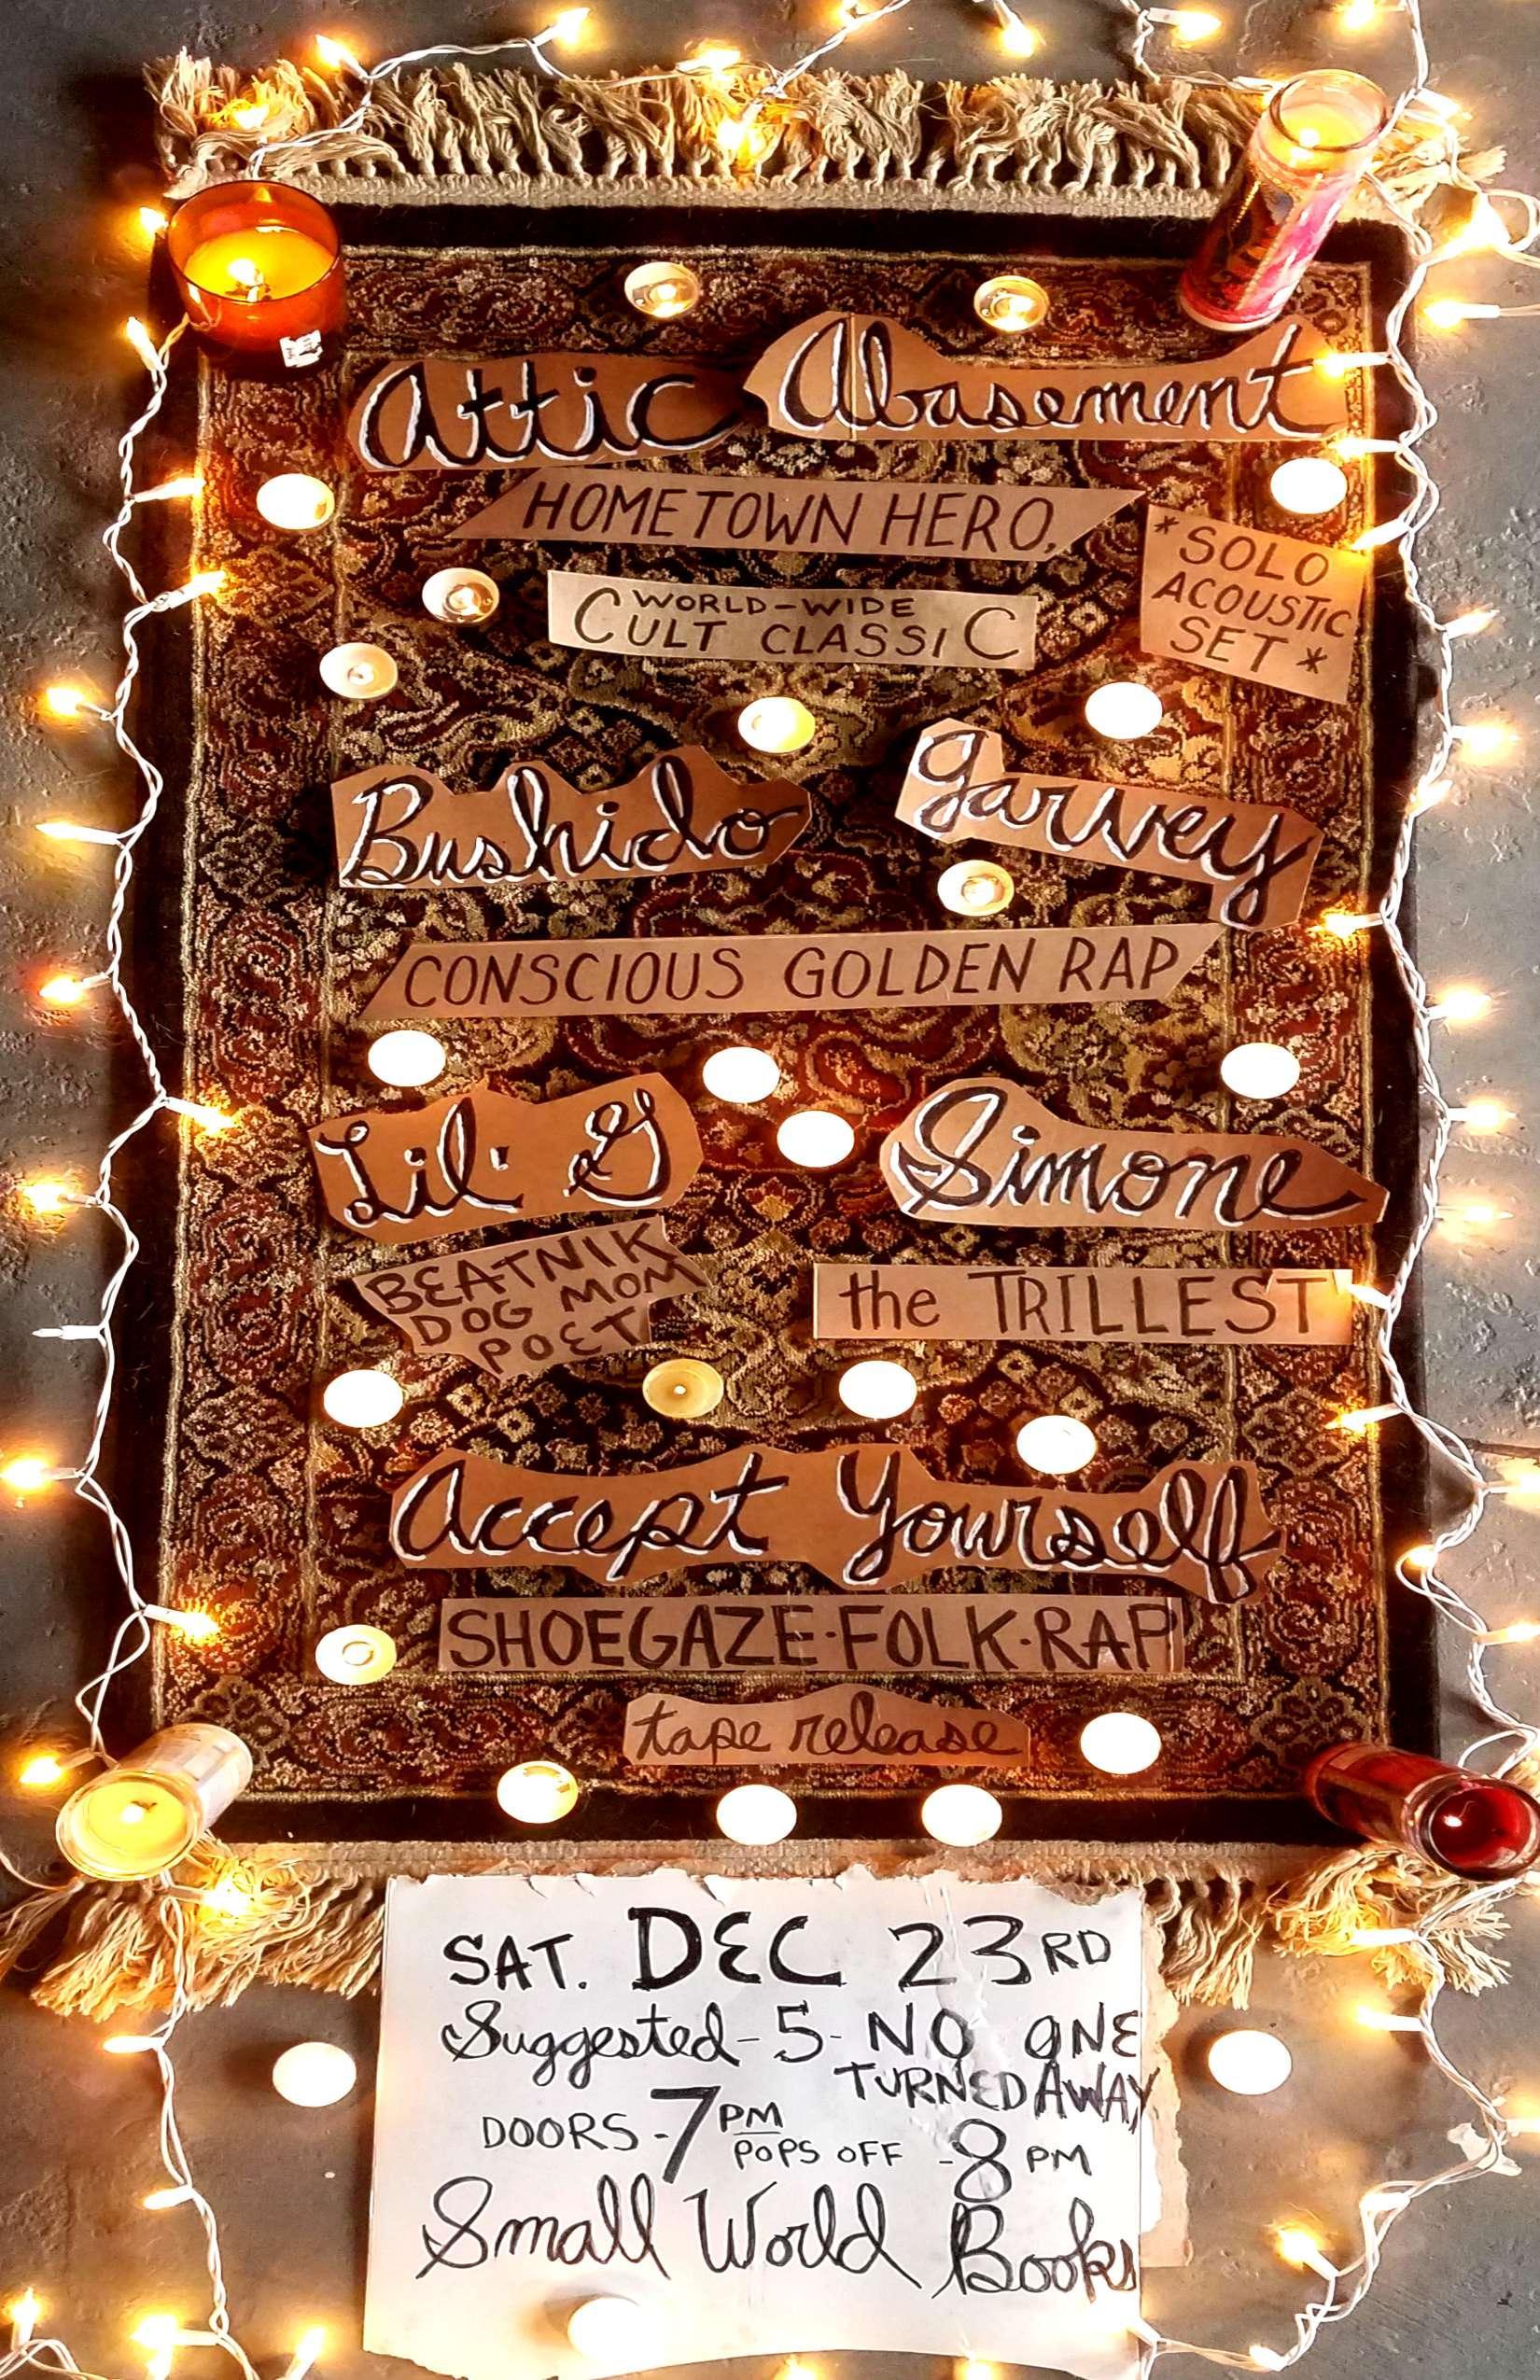 Attic Abasement
HOMETOWN HERO,
*SOLO
ACOUSTIC
SET*
WORLD-WIDE
CULT CLASSIC
Bushido
Garvey
CONSCIOUS GOLDEN RAP
Lil: G
BEATNIK
DOG MOM
POET
Simone
the TRILLEST
Accept Yourself
SHOEGAZE·FOLK·RAP
tape release
SAT. DEC 23RD
Suggested-5-NO ONE
TURNED AWAY
DOORS-7PM
POPS OFF -8PM
Small World Books